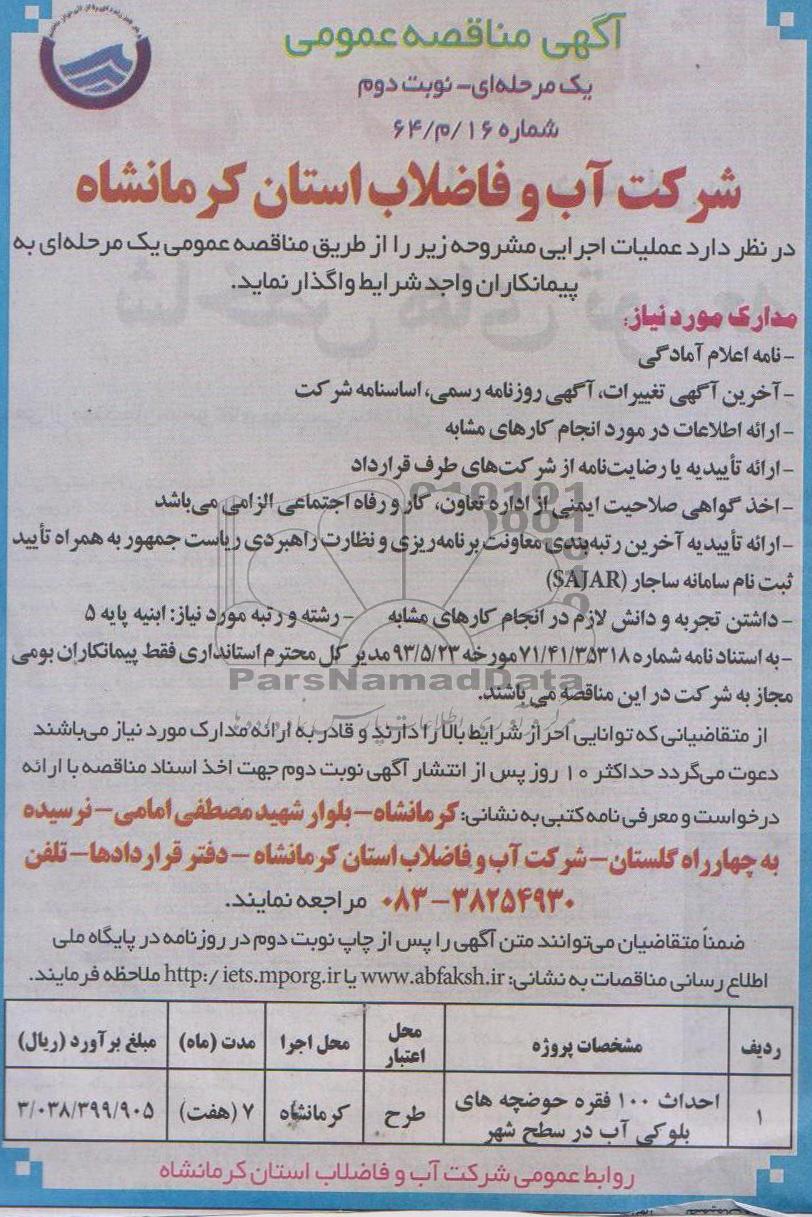 آگهی مناقصه عمومی
یک مرحله‌ای- نوبت دوم
شماره ۱۶/م/۶۴
شرکت آب و فاضلاب استان کرمانشاه
در نظر دارد عملیات اجرایی مشروحه زیر را از طریق مناقصه عمومی یک مرحله‌ای به
پیمانکاران واجد شرایط واگذار نماید.
مدارک مورد نیاز:
-نامه اعلام آمادگی
-آخرین آگهی تغییرات، آگهی روزنامه رسمی، اساسنامه شرکت
-ارائه اطلاعات در مورد انجام کارهای مشابه
-ارائه تأییدیه یا رضایت‌نامه از شرکت‌های طرف قرارداد
-اخذ گواهی صلاحیت ایمنی از اداره تعاون، کار و رفاه اجتماعی الزامی می‌باشد
-ارائه تأییدیه آخرین رتبه‌بندی معاونت برنامه‌ریزی و نظارت راهبردی ریاست جمهور به همراه تأیید
ثبت نام سامانه ساجار (SAJAR)
-داشتن تجربه و دانش لازم در انجام کارهای مشابه -رشته و رتبه مورد نیاز: ابنیه پایه ۵
-به استناد نامه شماره ۷۱/۴۱/۳۵۳۱۸ مورخه ۹۳/۵/۲۳ مدیر کل محترم استانداری فقط پیمانکاران بومی
مجاز به شرکت در این مناقصه می باشند.
ParsNamadData
از متقاضیانی که توانایی احراز شرایط بالا را دارند و قادر به ارائه مدارک مورد نیاز می‌باشند
دعوت می‌گردد حداکثر ۱۰ روز پس از انتشار آگهی نوبت دوم جهت اخذ اسناد مناقصه با ارائه
درخواست و معرفی نامه کتبی به نشانی: کرمانشاه- بلوار شهید مصطفی امامی- نرسیده
به چهارراه گلستان- شرکت آب و فاضلاب استان کرمانشاه -دفتر قراردادها- تلفن
۰۸۳-۳۸۲۵۴۹۳۰ مراجعه نمایند.
ضمناً متقاضیان می‌توانند متن آگهی را پس از چاپ نوبت دوم در روزنامه در پایگاه ملی
اطلاع رسانی مناقصات به نشانی: www.abfaksh.ir یا http:/ iets.mporg.ir ملاحظه فرمایند.
ردیف مشخصات پروژه محل اعتبار محل اجرا مدت (ماه) مبلغ برآورد (ریال)
۱ احداث ۱۰۰ فقره حوضچه های بلوکی آب در سطح شهر طرح کرمانشاه ۷ (هفت) ۳/۰۳۸/۳۹۹/۹۰۵
روابط عمومی شرکت آب و فاضلاب استان کرمانشاه